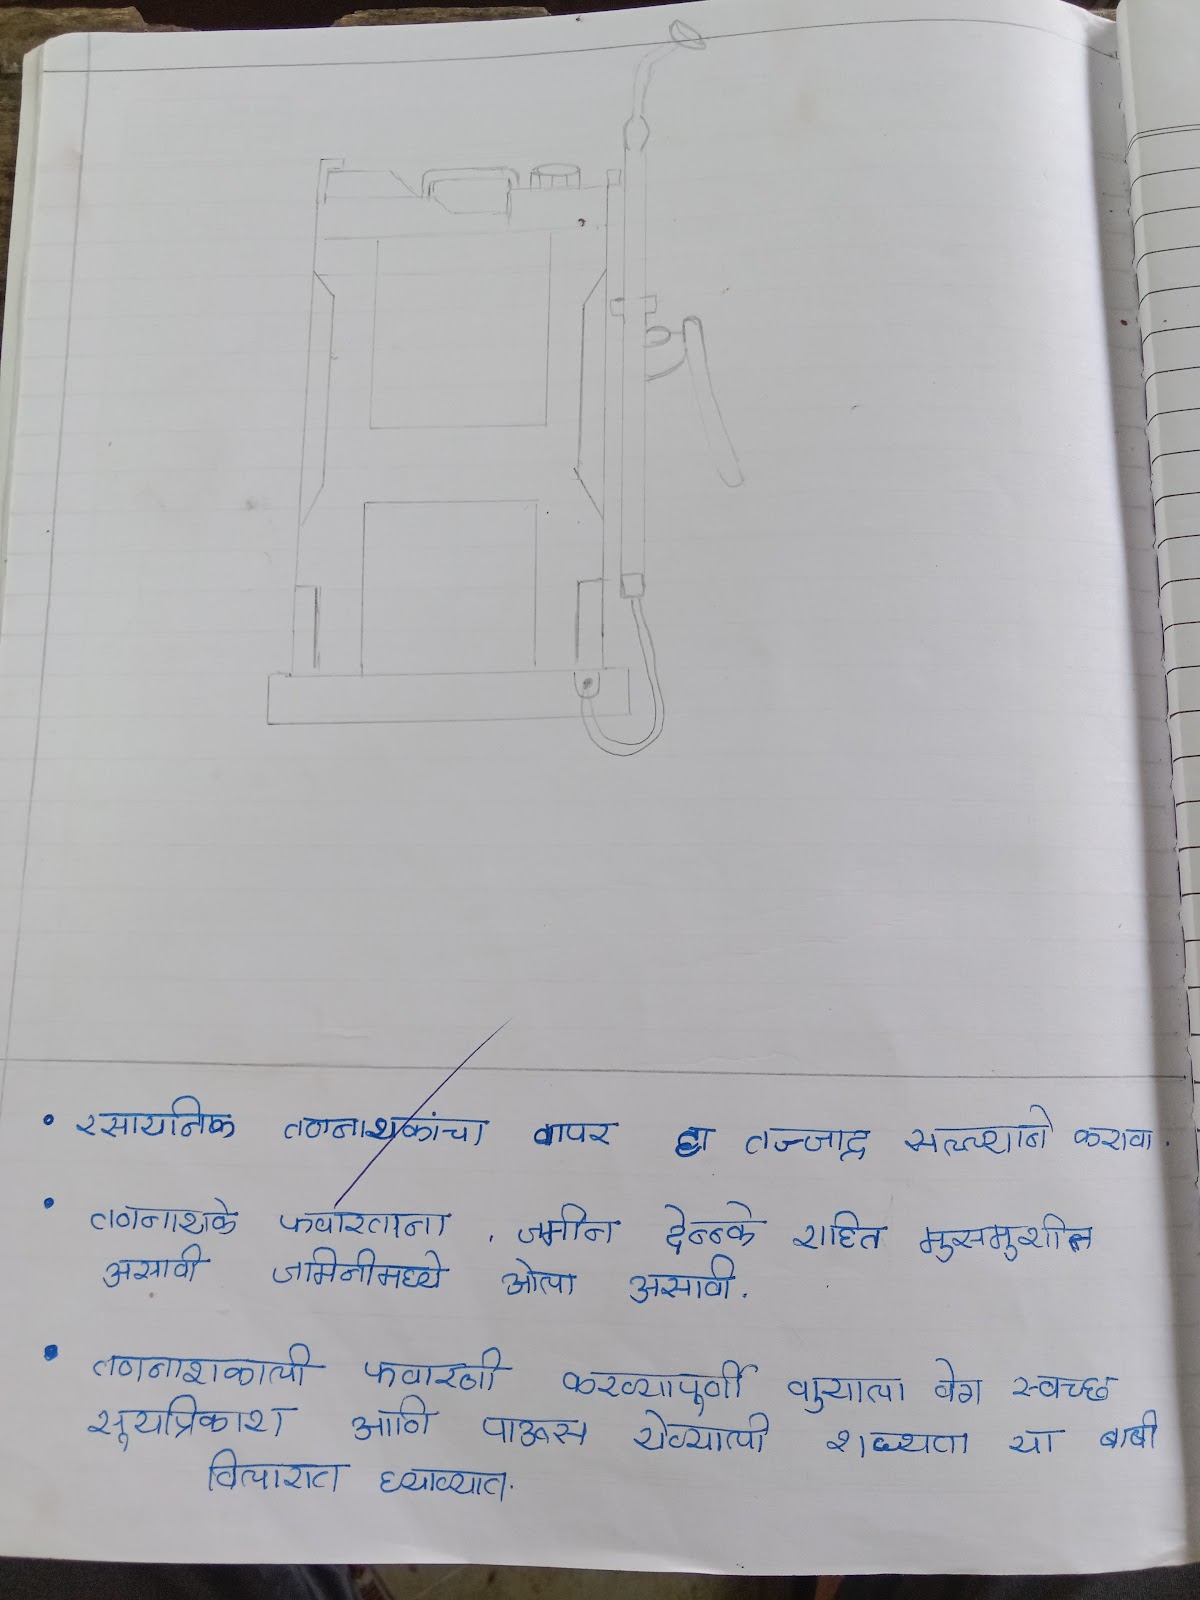 • रसायनिक तणनाशकांचा वापर हा तज्जाद्र सल्ल्याने करावा.
• तणनाशके फवारताना , जमीन ढेन्नके राहित मुसमुशीत
असावी जमिनीमध्ये ओला असावी.
• तणनाशकाची फवारणी करण्यापूर्णी वाुयाचा वेग स्वच्छ
सूयप्रिकाश आणि पाऊस येण्याची शक्यता या बाबी
विचारात घ्याव्यात.